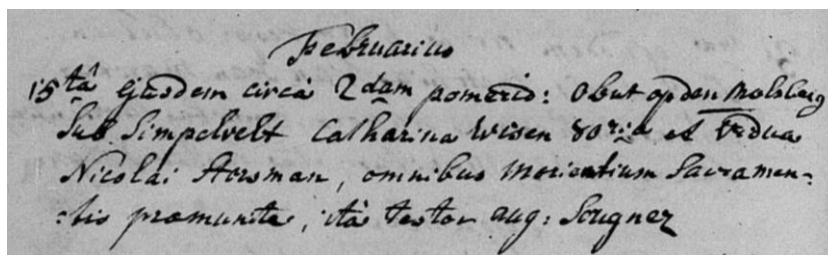 Februarius
15tâ ejusdem circà 2dam pomerid: obiit op den Molsberg
Sub Simpelvelt Catharina Wisen 80ria et vidua
Nicolai Horsman, omnibus morientium Sacramen-
-tis praemunita, ità testor aug: Sougnez